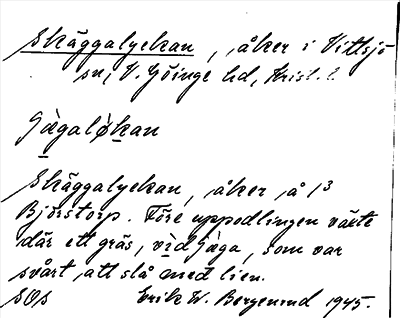 Skäggalyckan, åker i Vittsjö
sn, V. Göinge hd, Krist. l.
Skäggalyckan, åker å 1³
Björstorp. Före uppodlingen växte
där ett gräs, som var
svårt att slå med lien.
SOS Erik W. Bergstrand 1945.